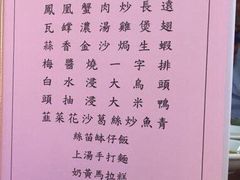 鳳凰濃湯肉炒長遠
瓦罉濃湯雞煲翅
蒜香金沙焗生蝦
梅醬燒一字排
白水浸大烏頭
頭抽浸大米鴨
韮菜花沙葛絲炒魚青
絲苗缽仔飯
上湯手打麵
奶黃馬拉糕